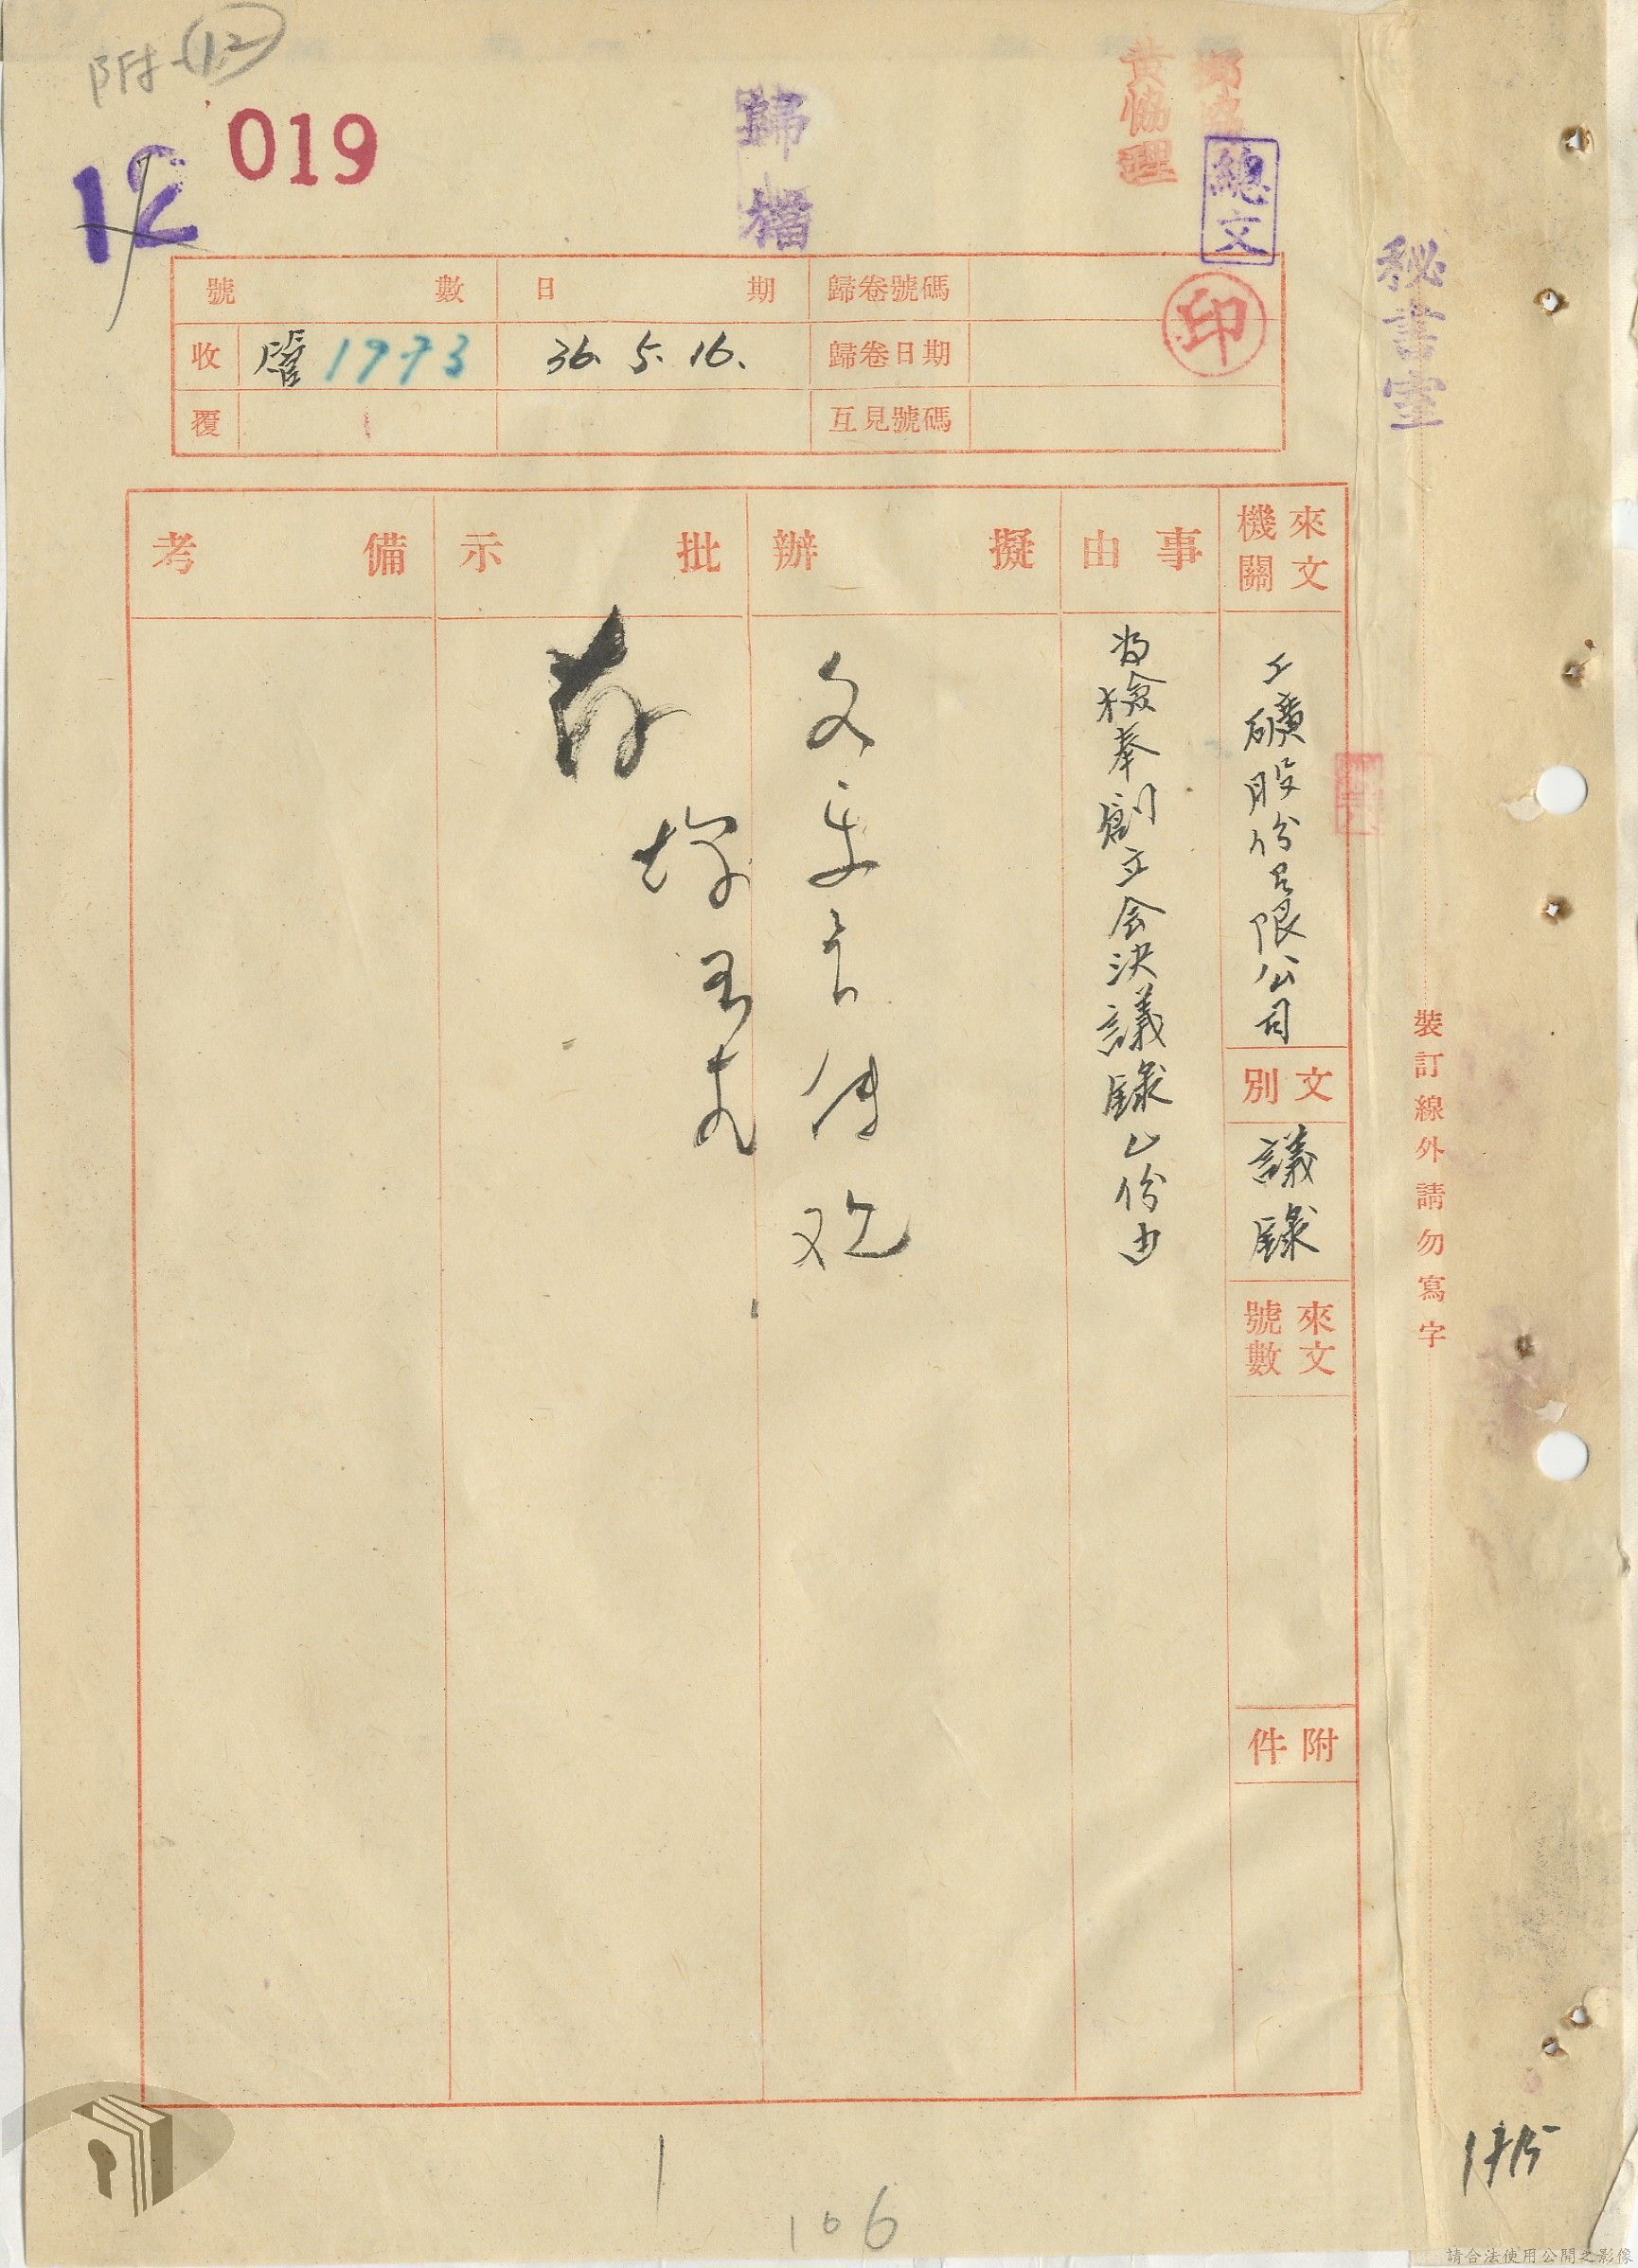 附(12)
019
12
歸檔
黃協理
總文
秘書室
號數 日期 歸卷號碼
收 1973 36.5.16. 歸卷日期
覆 互見號碼
印
來文機關
工礦股份有限公司
文別
議錄
來文號數
附件
事由
為檢奉創立会決議錄乙份由
擬辦
批示
存
備考
裝訂線外請勿寫字
106
請合法使用公開之影像